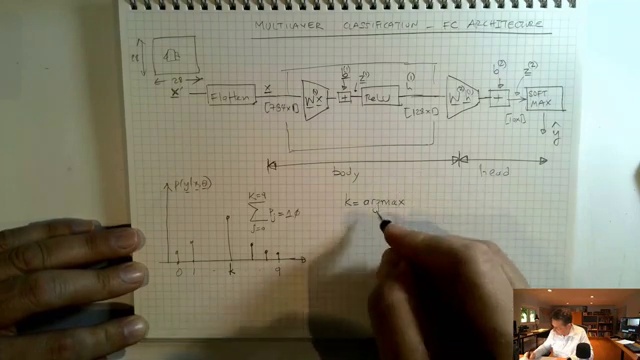 MULTILAYER CLASSIFICATION - FC ARCHITECTURE
28
28
x'
Flatten
x
[784x1]
W⁽¹⁾x
b⁽¹⁾
+
z⁽¹⁾
ReLU
h⁽¹⁾
[128x1]
W⁽²⁾h⁽¹⁾
b⁽²⁾
+
z⁽²⁾
[10x1]
SOFT
MAX
ŷ
body
head
p(y|x,θ)
K=9
Σ pⱼ = 1.0
j=0
k = argmax
0 1 . k 9